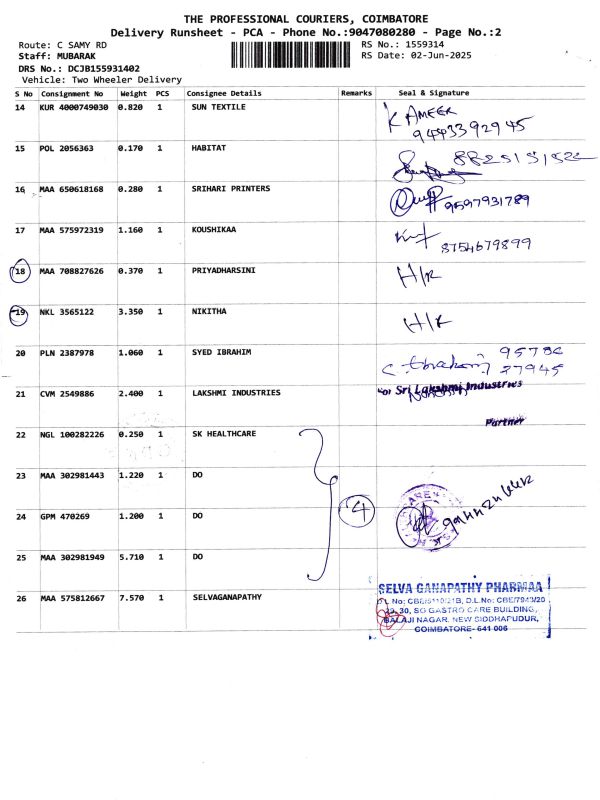 THE PROFESSIONAL COURIERS, COIMBATORE
Delivery Runsheet - PCA - Phone No.:9047080280 - Page No.:2
Route: C SAMY RD
RS No.: 1559314
Staff: MUBARAK
RS Date: 02-Jun-2025
DRS No.: DCJB155931402
Vehicle: Two Wheeler Delivery
S No Consignment No Weight PCS Consignee Details Remarks Seal & Signature
14 KUR 4000749030 0.820 1 SUN TEXTILE K AMEER
9443392945
15 POL 2056363 0.170 1 HABITAT
16 MAA 650618168 0.280 1 SRIHARI PRINTERS 9597931789
17 MAA 575972319 1.160 1 KOUSHIKAA
8754679899
18 MAA 708827626 0.370 1 PRIYADHARSINI H/R
19 NKL 3565122 3.350 1 NIKITHA H/R
20 PLN 2387978 1.060 1 SYED IBRAHIM 95786
27945
21 CVM 2549886 2.400 1 LAKSHMI INDUSTRIES For Sri Lakshmi Industries
Partner
22 NGL 100282226 0.250 1 SK HEALTHCARE
23 MAA 302981443 1.220 1 DO
24 GPM 470269 1.200 1 DO 4
25 MAA 302981949 5.710 1 DO
26 MAA 575812667 7.570 1 SELVAGANAPATHY SELVA GANAPATHY PHARMAA
29, 30, SG GASTRO CARE BUILDING,
BALAJI NAGAR, NEW SIDDHAPUDUR,
COIMBATORE- 641 006